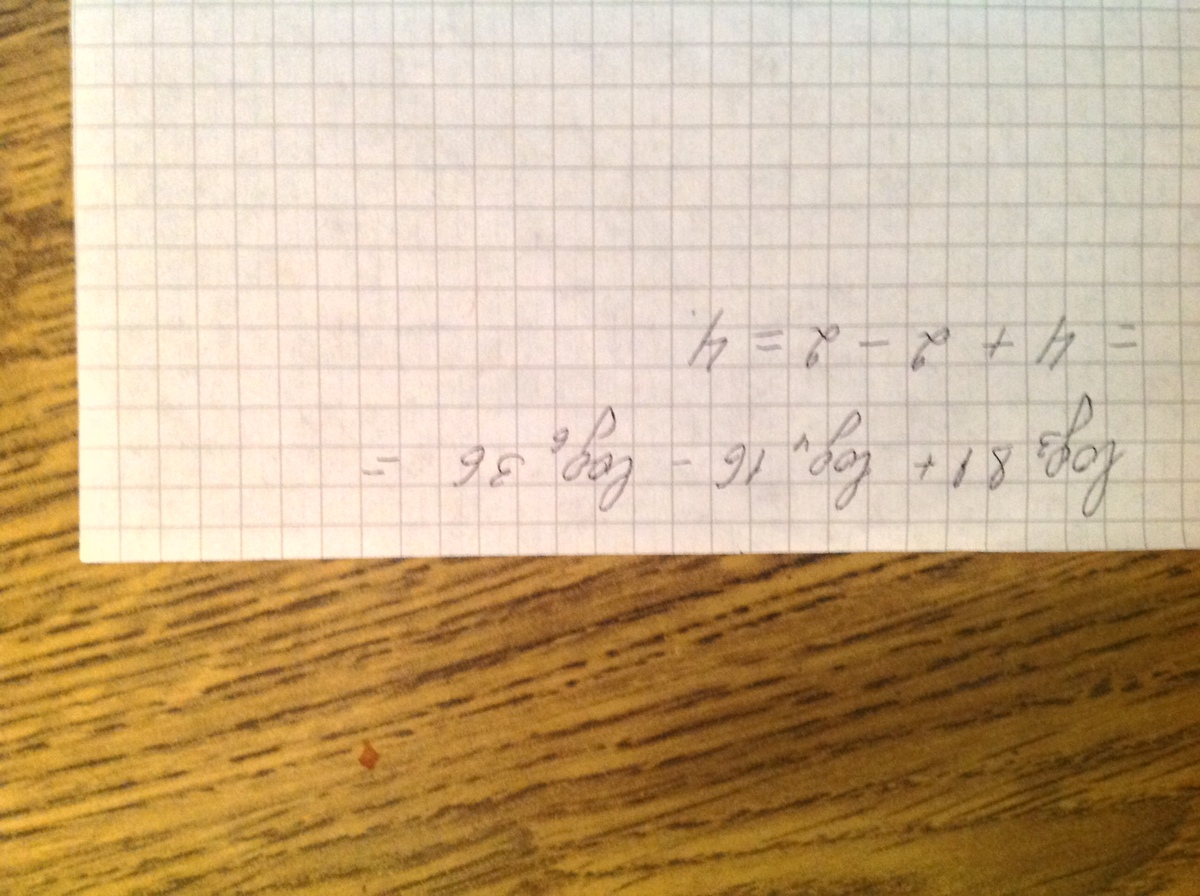 log₃ 81 + log₄ 16 - log₆ 36 =
= 4 + 2 - 2 = 4.